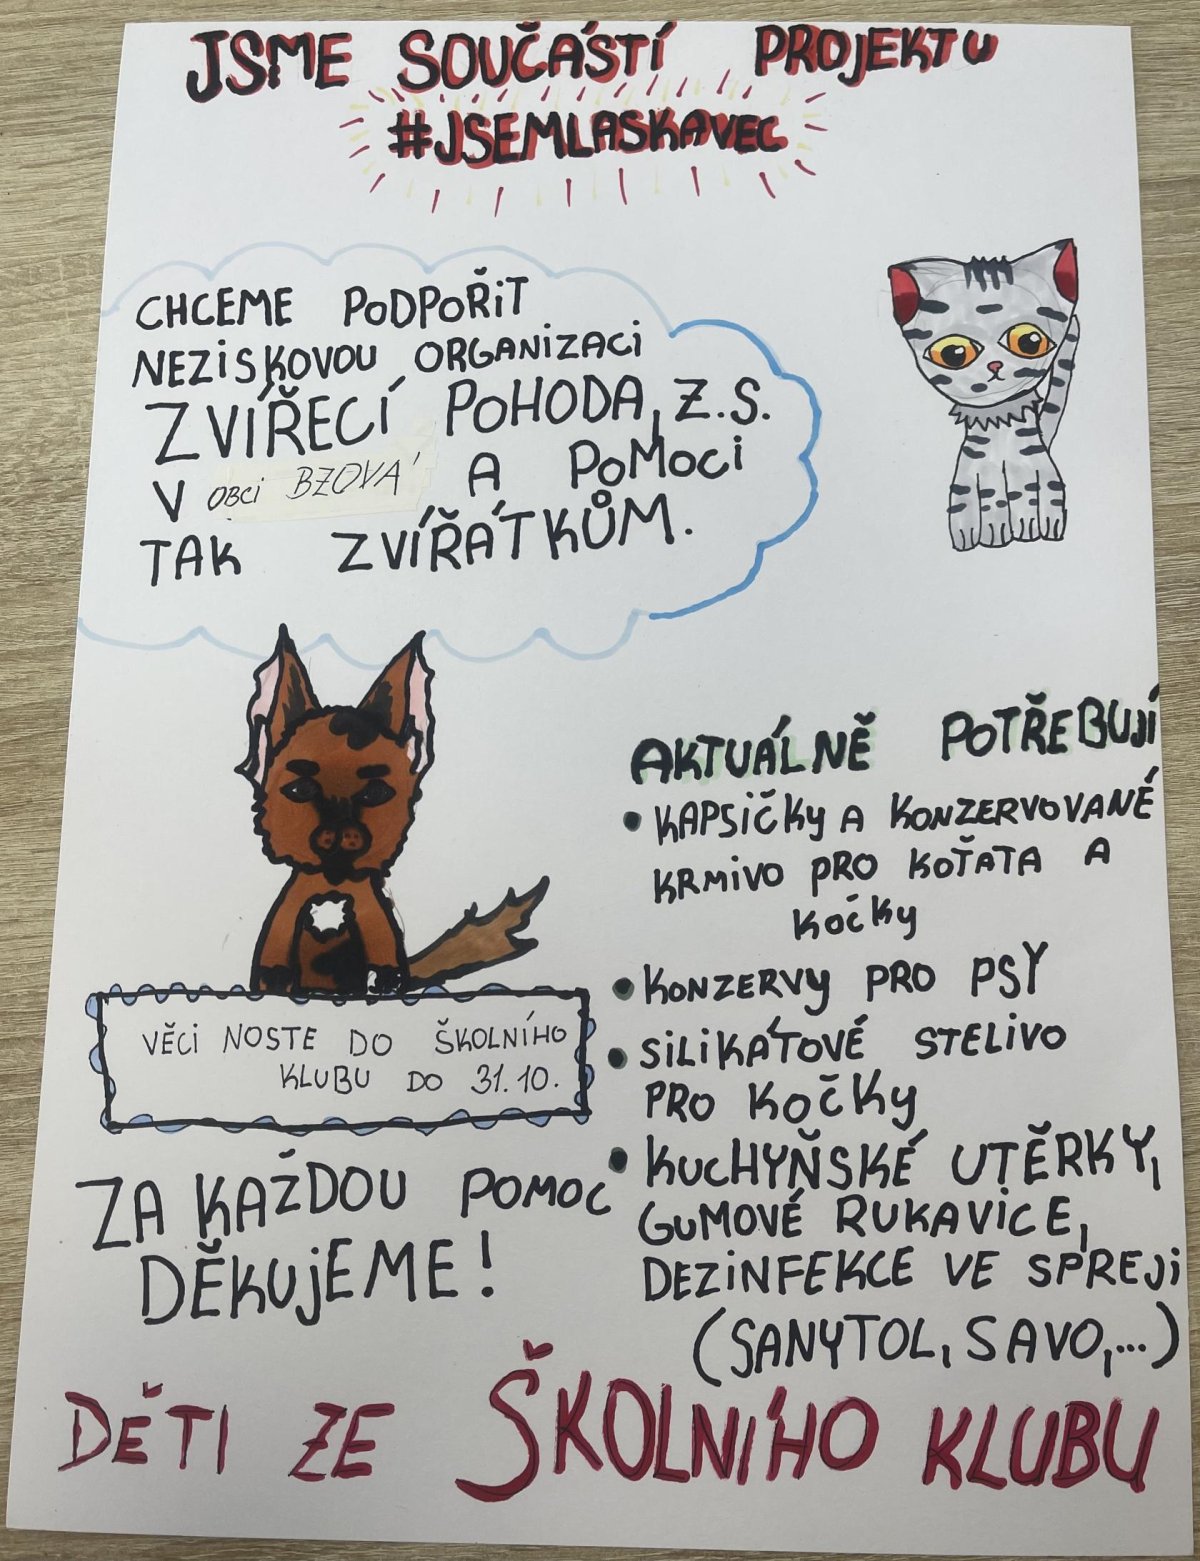 JSME SOUČÁSTÍ PROJEKTU
#JSEMLASKAVEC
CHCEME PODPOŘIT
NEZISKOVOU ORGANIZACI
ZVÍŘECÍ POHODA, Z.S.
V OBCI BZOVÁ A POMOCI
TAK ZVÍŘÁTKŮM.
AKTUÁLNĚ POTŘEBUJÍ
• KAPSIČKY A KONZERVOVANÉ
KRMIVO PRO KOŤATA A
KOČKY
• KONZERVY PRO PSY
• SILIKÁTOVÉ STELIVO
PRO KOČKY
• KUCHYŇSKÉ UTĚRKY,
GUMOVÉ RUKAVICE,
DEZINFEKCE VE SPREJI
(SANYTOL, SAVO,...)
VĚCI NOSTE DO ŠKOLNÍHO
KLUBU DO 31.10.
ZA KAŽDOU POMOC
DĚKUJEME!
DĚTI ZE ŠKOLNÍHO KLUBU